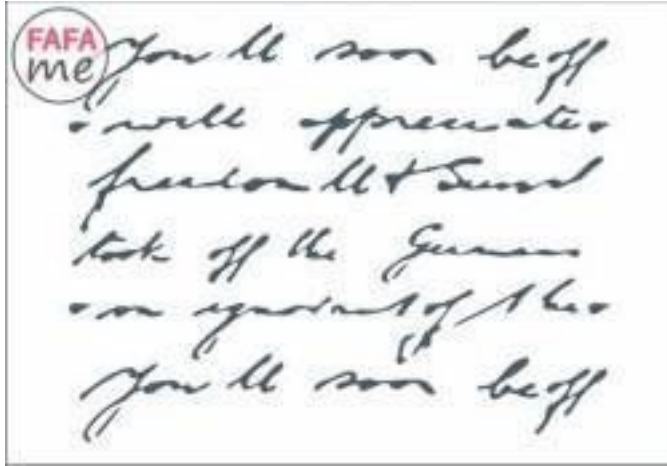 FAFA
me
You'll soon be off
will appreciate
freedom
took off the Germans
ignorant of the
You'll soon be off